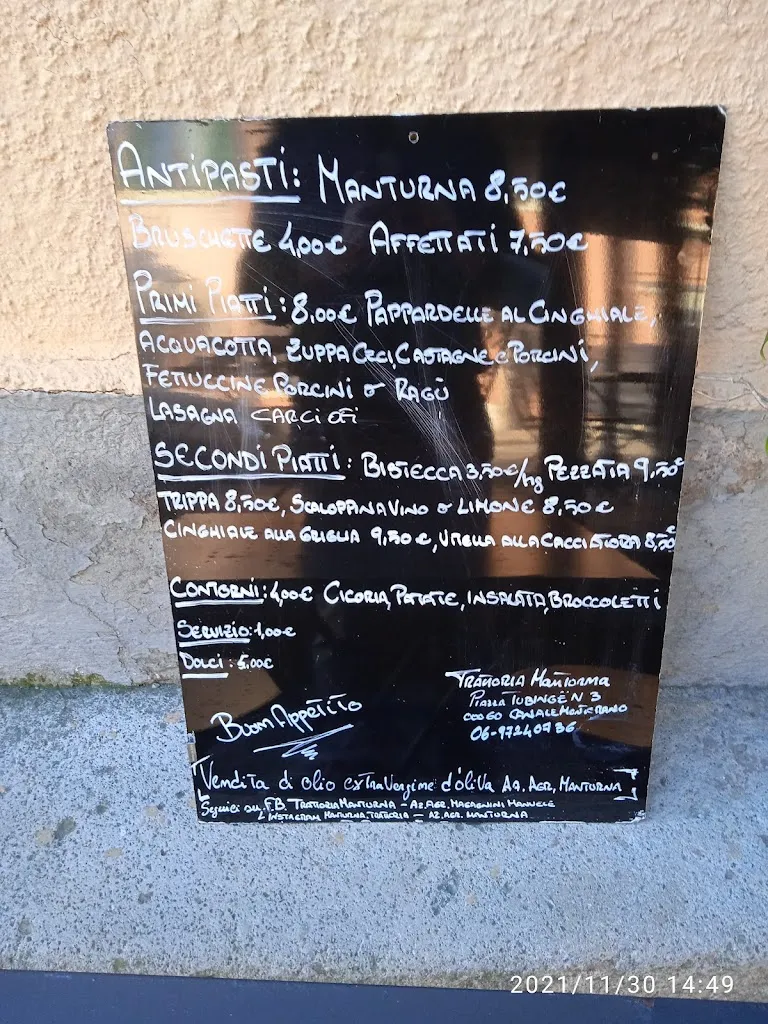 ANTIPASTI: MANTURNA 8,50€
BRUSCHETTE 4,00€ AFFETTATI 7,50€
PRIMI PIATTI: 8,00€ PAPPARDELLE AL CINGHIALE,
ACQUACOTTA, ZUPPA CECI, CASTAGNE e PORCINI,
FETTUCCINE PORCINI o RAGÙ
LASAGNA CARCIOFI
SECONDI PIATTI: BISTECCA 3,50€/hg PEZZATA 9,50€
TRIPPA 8,50€, SCALOPPINA VINO o LIMONE 8,50€
CINGHIALE ALLA GRIGLIA 9,50€, VITELLA ALLA CACCIATORA 8,50€
CONTORNI: 4,00€ CICORIA, PATATE, INSALATA, BROCCOLETTI
SERVIZIO: 1,00€
DOLCI: 5,00€
TRATTORIA MANTURNA
PIAZZA TUBINGEN N 3
00060 CANALE MONTERANO
06-97240736
BUON APPETITO
[Vendita di olio extravergine d'oliva Az. AGR. MANTURNA]
Seguici su: F.B. TRATTORIA MANTURNA - AZ. AGR. MAGAGNINI MANUELE
INSTAGRAM MANTURNA TRATTORIA - AZ. AGR. MANTURNA
2021/11/30 14:49